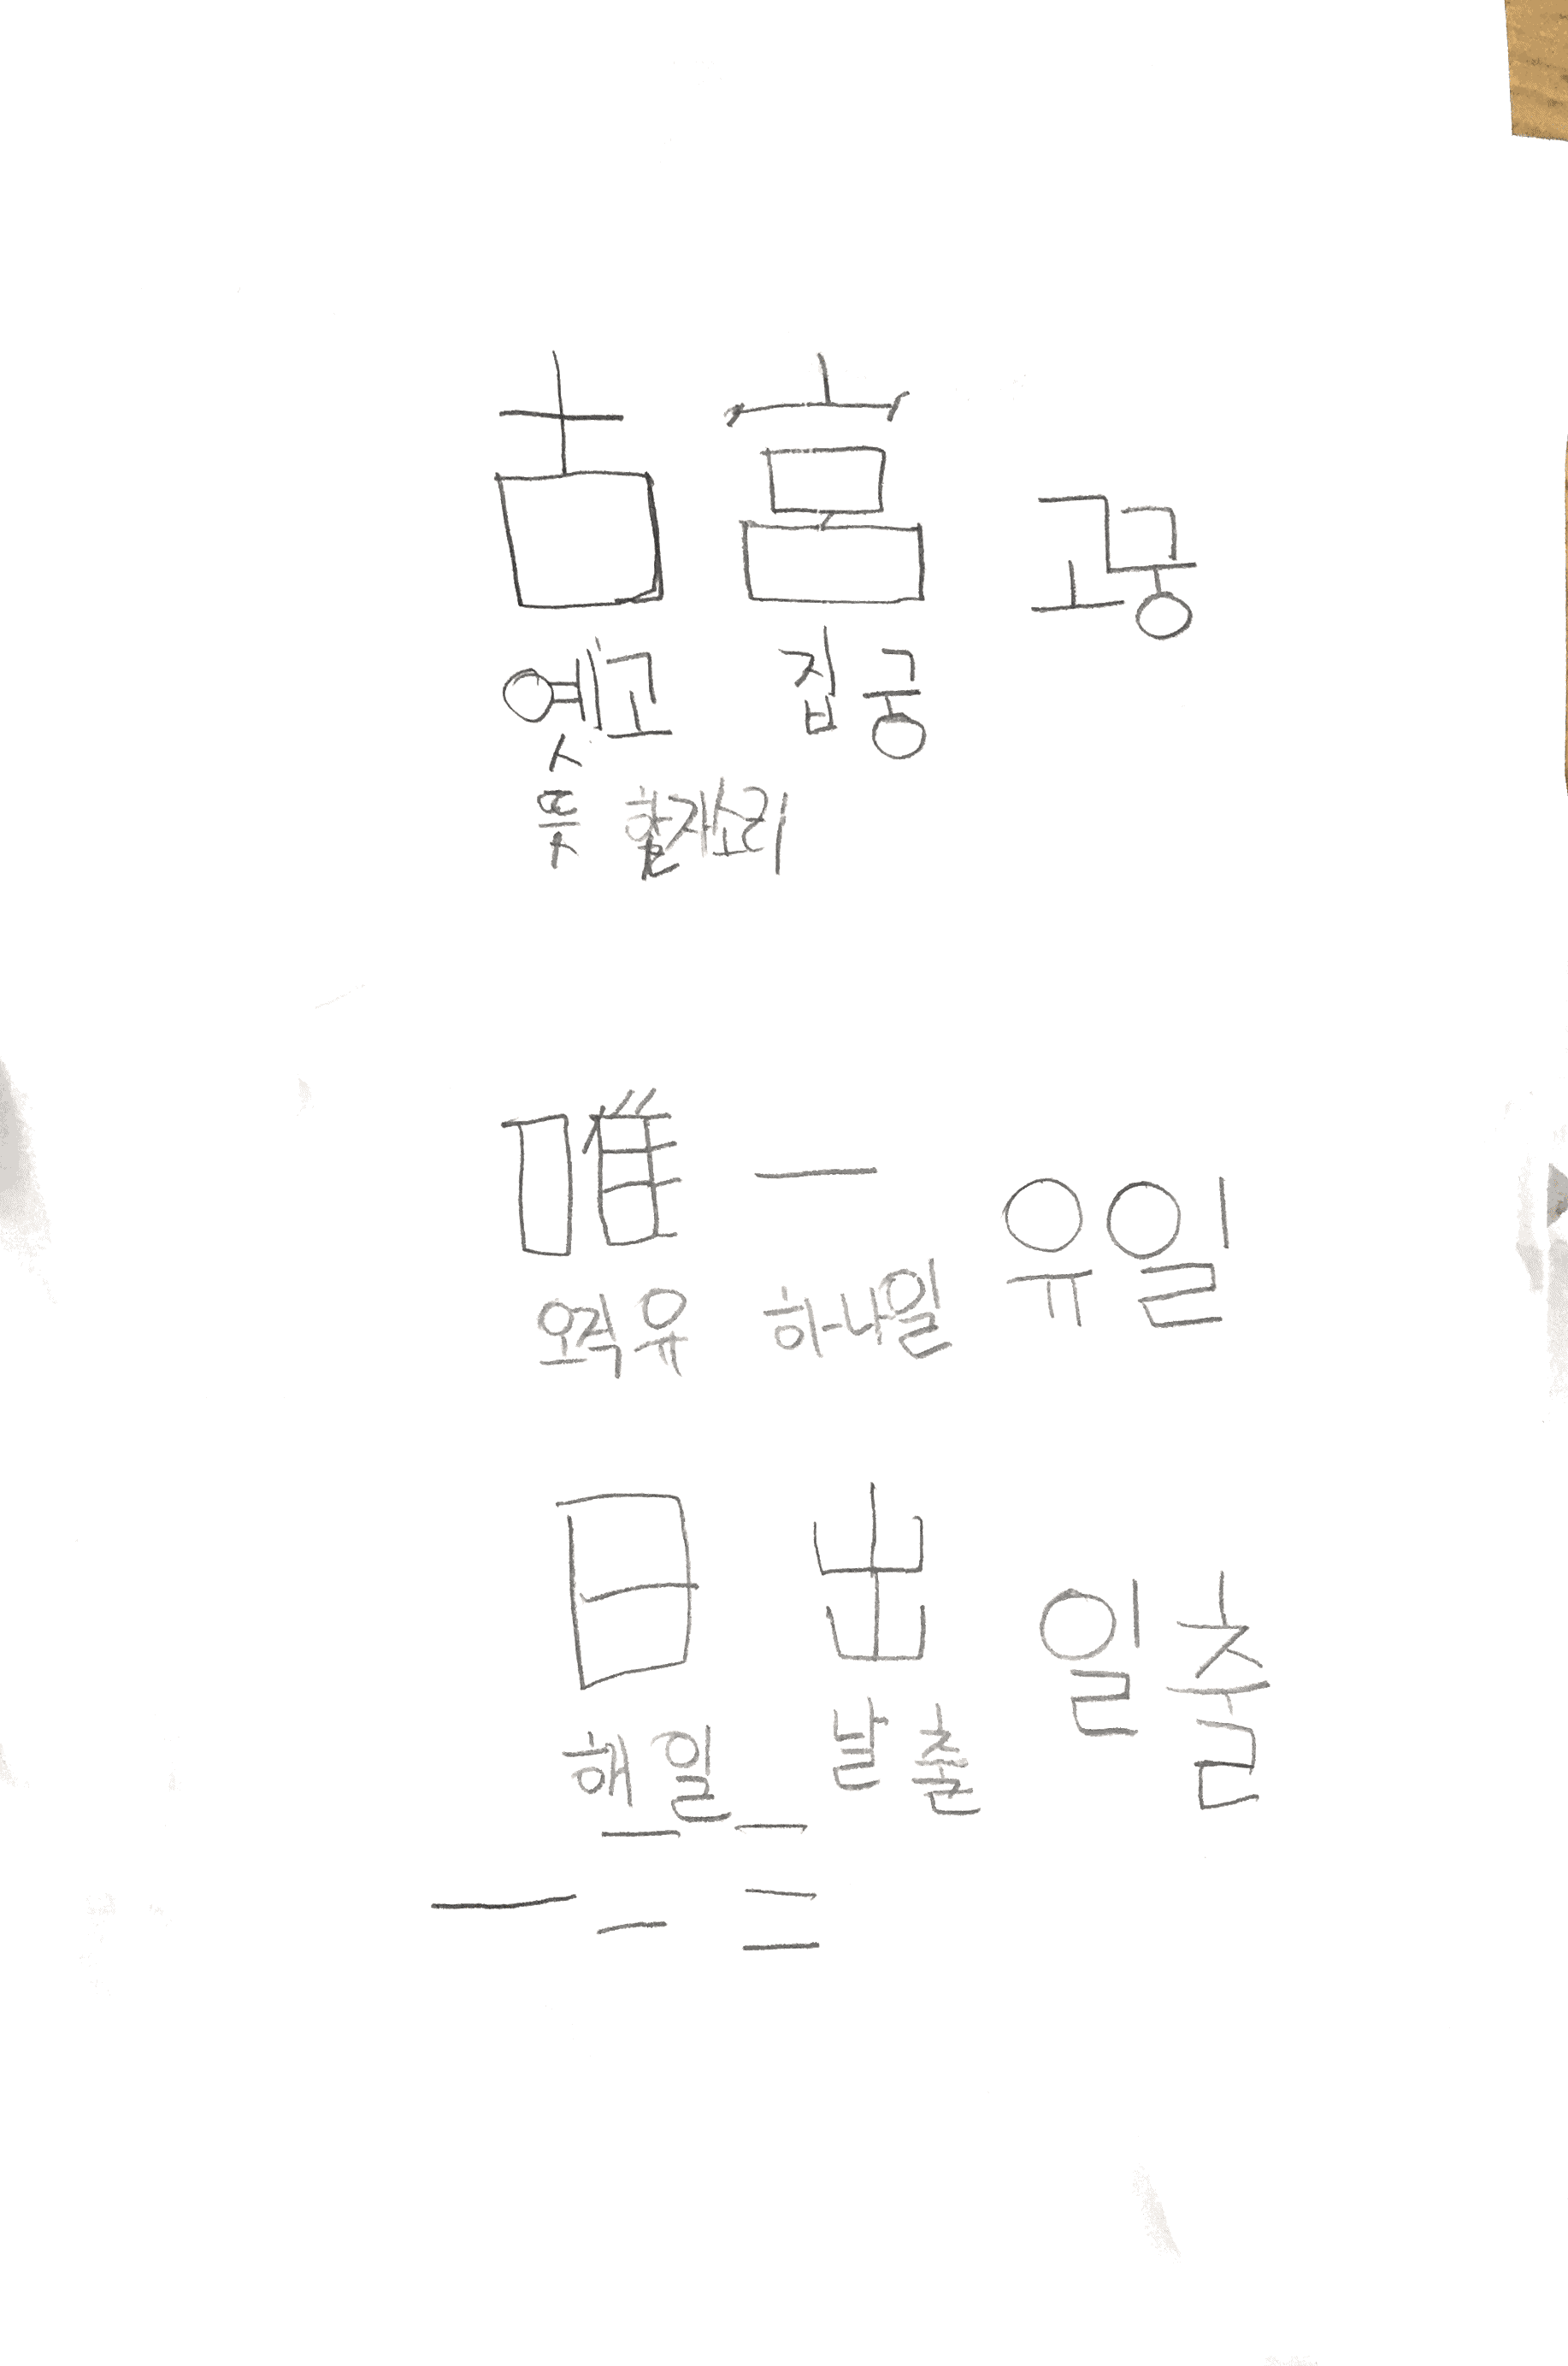 古 宮 고궁
예고 집궁
ㅅ
뜻 한자소리
唯 一 유일
오직유 하나일
日 出 일출
해일 날출
一 二 三